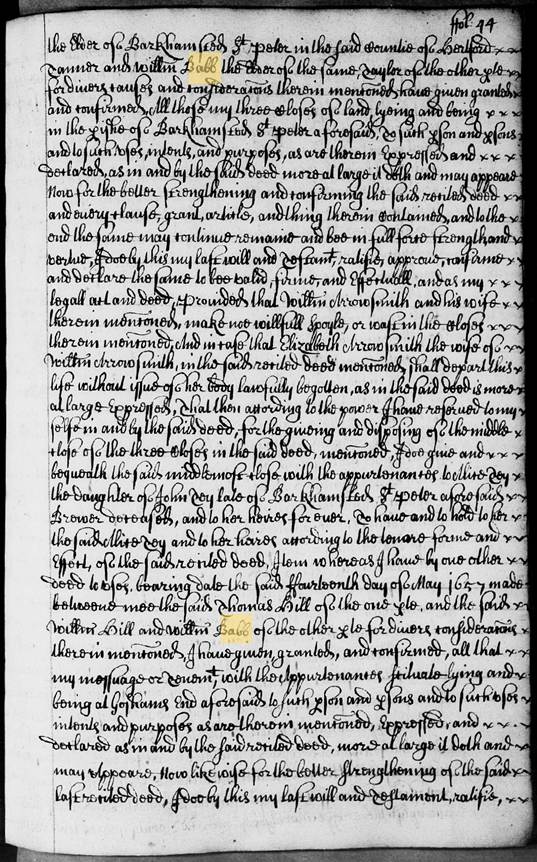 ffol: 44
the Elder of Barkhamsted St Peter in the said Countie of Hertford
Tanner and Willm Babb the Elder of the same, Taylor of the other pte
for divers causes and consideratons therein mentoned, have given granted
and confirmed, All those my three Closes of land, lyeing and being
in the pishe of Barkhamsted St Peter aforesaid, To such pson and psons
and to such uses, intents, and purposes, as are therein Expressed and
declared, as in and by the said deed more at large it doth and may appeare
Now for the better strengthening and confirming the said recited deed
and every clause, grant, article, and thing therein contained, and to the
end the same may continue remaine and bee in full force strength and
vertue, I doe by this my last will and Testamt, ratifie, approve, confirme
and declare the same to bee valid, firme, and Effectuall, and as my
legall act and deed, Provided that Willm Arrowsmith and his wife
therein mentoned, make noe willfull spoyle, or wast in the Closes
therein mentoned, And in case that Elizabeth Arrowsmith the wife of
Willm Arrowsmith, in the said recited deed mentoned, shall depart this
life without issue of her body lawfully begotten, as in the said deed is more
at large Expressed, That then according to the power I have reserved to my
selfe in and by the said deed, for the giveing and disposing of the middle
close of the three Closes in the said deed, mentoned, I doe give and
bequeath the said middlemost close with the appurtenances to Alice
the daughter of John late of Barkhamsted St Peter aforesaid
Brewer deceased, and to her heires for ever, To have and to hold to her
the said Alice and to her heires according to the tenure forme and
Effect, of the said recited deed, Item whereas I have by one other
deed to uses, bearing date the said ffourteenth day of May 1657 made
betweene mee the said Thomas Hill of the one pte, and the said
Willm Hill and Willm Babb of the other pte for divers consideratons
therein mentoned, I have given, granted, and confirmed, all that
my messuage or Tenemt, with the Appurtenances scituate lying and
being at End aforesaid to such pson and psons and to such uses
intents and purposes as are therein mentoned, Expressed, and
declared as in and by the said recited deed, more at large it doth and
may Appeare, Now likewise for the better strengthening of the said
last recited deed, I doe by this my last will and Testament, ratifie,